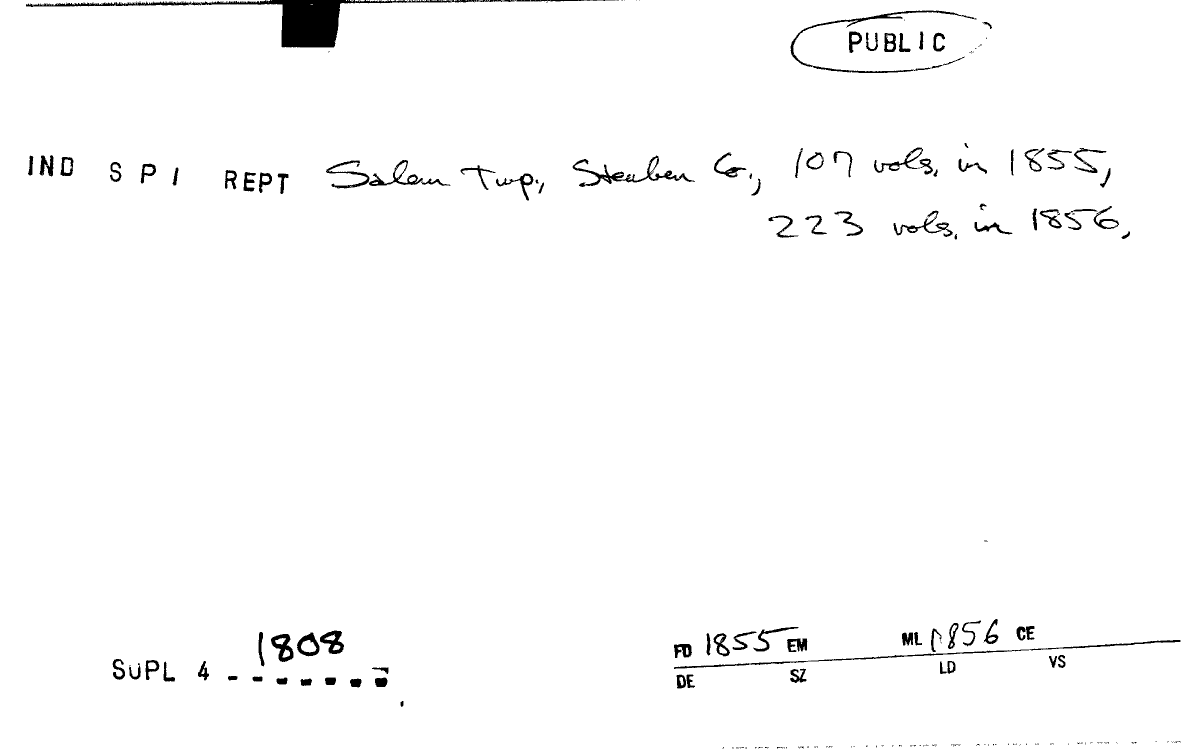 PUBLIC
IND S P I REPT Salem Twp., Steuben Co., 107 vols. in 1855,
223 vols. in 1856,
1808
SUPL 4 -------
FD 1855 EM ML 1856 CE
DE SZ LD VS